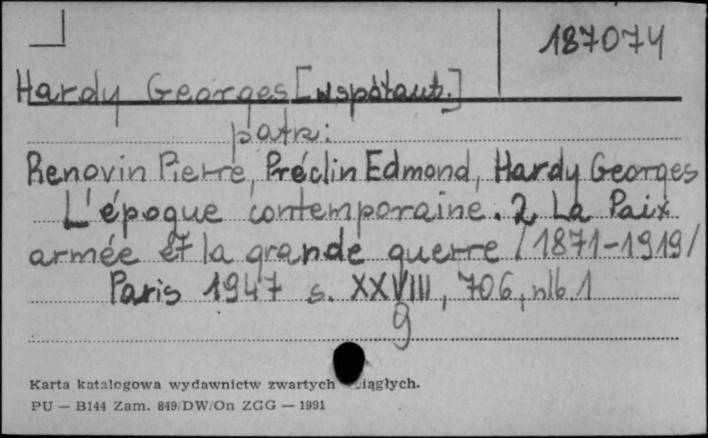 187074
Hardy Georges [współaut.]
patrz:
Renovin Pierre, Préclin Edmond, Hardy Georges
L'époque contemporaine. 2. La Paix
armée et la grande guerre /1871-1919/
Paris 1947 s. XXVIII, 706, nlb. 1
9
Karta katalogowa wydawnictw zwartych ciągłych.
PU — B144 Zam. 849/DW/On ZGG — 1991